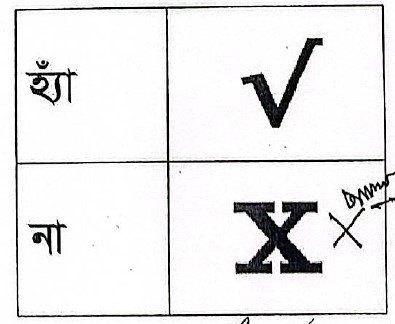 হ্যাঁ √
না X X